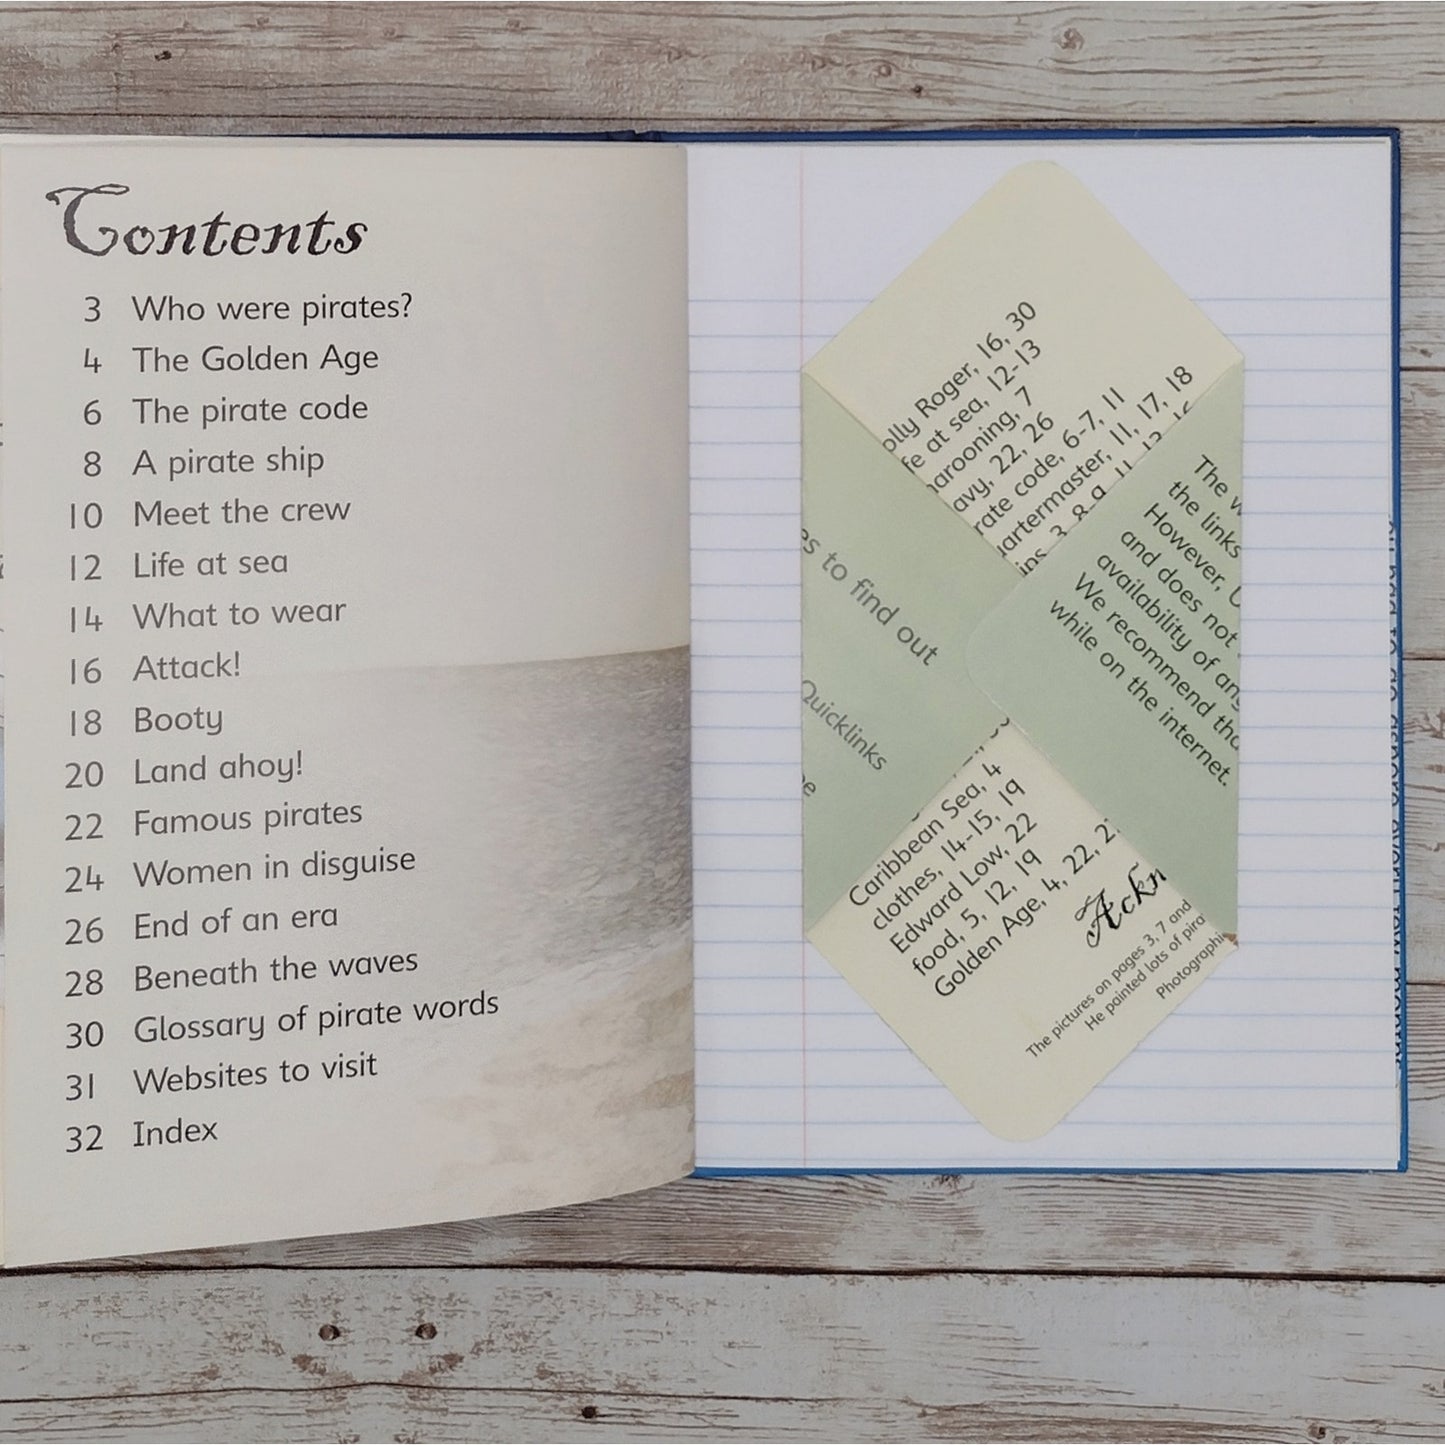 Contents
3 Who were pirates?
4 The Golden Age
6 The pirate code
8 A pirate ship
10 Meet the crew
12 Life at sea
14 What to wear
16 Attack!
18 Booty
20 Land ahoy!
22 Famous pirates
24 Women in disguise
26 End of an era
28 Beneath the waves
30 Glossary of pirate words
31 Websites to visit
32 Index
olly Roger, 16, 30
fe at sea, 12-13
arooning, 7
avy, 22, 26
rate code, 6-7, 11
uartermaster, 11, 17, 18
The w
the links
However, U
and does not
availability of any
We recommend tha
while on the internet.
es to find out
Quicklinks
Caribbean Sea, 4
clothes, 14-15, 19
Edward Low, 22
food, 5, 12, 19
Golden Age, 4, 22, 2
Ackn
The pictures on pages 3, 7 and
He painted lots of pira
Photographi